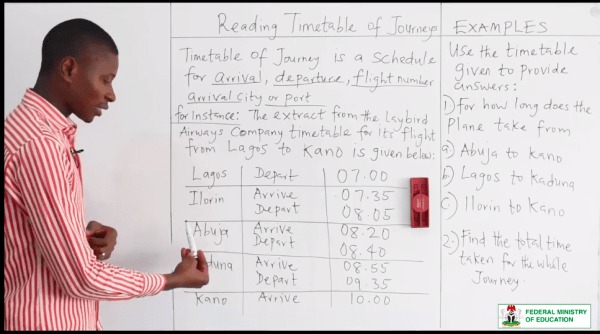 Reading Timetable of Journeys
Timetable of Journey is a schedule
for arrival, departure, flight number
arrival city or port
for Instance: The extract from the Laybird
Airways Company timetable for its flight
from Lagos to Kano is given below:
Lagos Depart 07.00
Ilorin Arrive 07.35
Depart 08.05
Abuja Arrive 08.20
Depart 08.40
duna Arrive 08.55
Depart 09.35
Kano Arrive 10.00
EXAMPLES
Use the timetable
given to provide
answers:
1) For how long does the
Plane take from
a) Abuja to Kano
b) Lagos to Kaduna
c) Ilorin to Kano
2) Find the total time
taken for the whole
Journey.
FEDERAL MINISTRY
OF EDUCATION